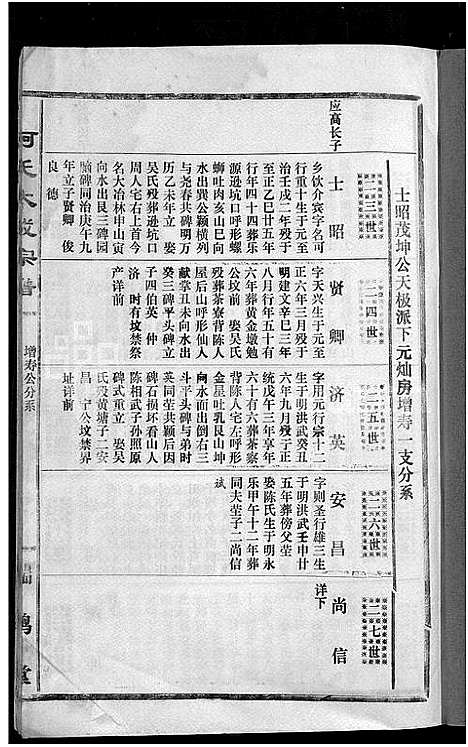 士昭茂坤公天极派下元灿房增寿一支分系
二三世
应高长子
士昭
乡饮介宾字名可
行重十生于元至
治壬戌二年殁于
至正乙巳廿五年
行年四十四葬乐
源逊坑口呼形螺
蛳吐肉亥山巳向
水出巽公颖横列
与尧春共碑明万
历乙未年立 娶
吴氏殁葬逊坑口
周人宅右上首今
名大冶林申山寅
向水出艮三碑园
脑碑同治庚午九
年立子贤卿 俊
良 德
二四世
贤卿
字天兴生于元至
正六年三月殁于
明建文辛巳三年
八月行年五十有
六年葬黄金墩勉
公坟前 娶吴氏
殁葬茶寮背陈人
屋后山呼形仙人
献掌丑未向水出
癸三碑平头碑立
子四伯英 仲
济 时有坟禁祭
产详前
二五世
济英
字用元行宗十二
生于明洪武癸丑
六年九月殁于正
统戊午三年享年
六十有六葬茶寮
背陈人宅左呼形
金星吐乳艮山坤
向水南出倒右三
斗平头碑与弟时
英同茔共颖后因
碑石损坏看山人
陈相武子孙照原
碑式重立 娶吴
氏殁黄塘子二安
昌 宁公坟禁界
址详前
二六世
安昌
字则圣行雄三生
于明洪武壬申廿
五年葬傍父茔
娶陈氏生于明永
乐甲午十二年葬
同夫茔子二尚信
斌
二七世
尚信
详下
何氏大成宗谱
增寿公分系